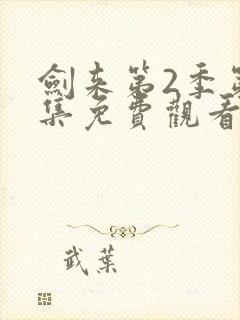 劍来第2季第
集免費觀看
武葉